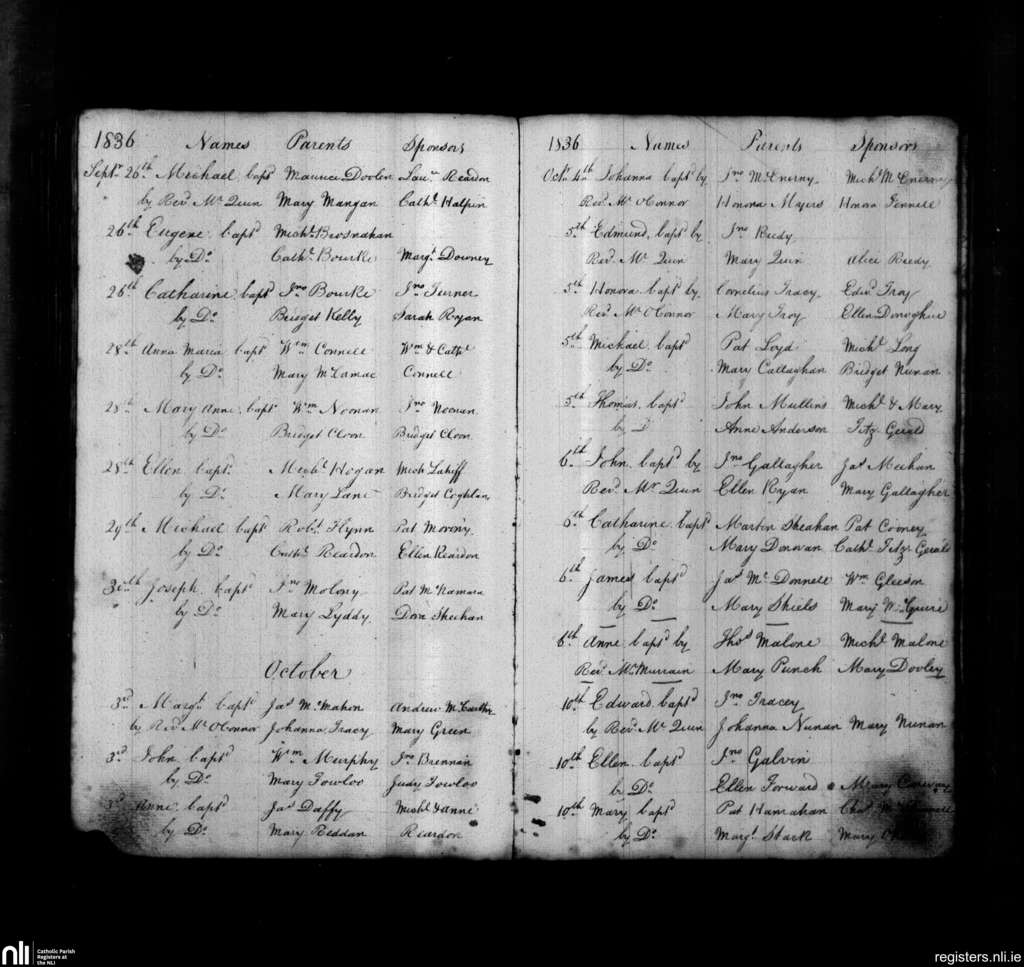 1836 Names Parents Sponsors
Septr 26th Michael bapd Maurice Doolen Laur. Reardon
by Revd Mr Quin Mary Mangan Cathe Halpin
26th Eugene bapd Michl Brosnahan
by Do Cathe Bourke Margt Downey
26th Catharine bapd Jno Bourke Jno Turner
by Do Bridget Kelly Sarah Ryan
28th Anna Maria bapd Wm Connell Wm & Cathe
by Do Mary McNamac Connell
28th Mary Anne bapd Wm Noonan Jno Noonan
by Do Bridget Cloon Bridget Cloon
28th Ellen bapd Michl Hogan Mich Lahiff
by Do Mary Lane Bridget Coghlan
29th Michael bapd Robt Flynn Pat Morony
by Do Cathe Reardon Ellen Reardon
30th Joseph bapd Jno Molony Pat McNamara
by Do Mary Lyddy Dora Sheehan
October
3rd Margt bapd Jas McMahon Andrew McCarthy
by Revd Mr OConnor Johanna Tracy Mary Green
3rd John bapd Wm Murphy Jno Brennan
by Do Mary Fowloo Judy Fowloo
3rd Anne bapd Jas Daffy Michl & Anne
by Do Mary Reddan Reardon
1836 Names Parents Sponsors
Octr 4th Johanna bapd by Jno McEnerny Michl McEnerny
Revd Mr OConnor Honora Myers Honora Fennell
5th Edmund bapd by Jno Reedy
Revd Mr Quin Mary Quin Alice Reedy
5th Honora bapd by Cornelius Tracy Edwd Troy
Revd Mr OConnor Mary Troy Ellen Donoghue
5th Michael bapd Pat Loyd Michl Long
by Do Mary Callaghan Bridget Nunan
5th Thomas bapd John Mullins Michl & Mary
by D Anne Anderson Fitz Gerald
6th John bapd by Jno Gallagher Jas Meehan
Revd Mr Quin Ellen Ryan Mary Gallagher
6th Catharine bapd Martin Sheahan Pat Cooney
by Do Mary Donovan Cathe Fitz Gerald
6th James bapd Jas McDonnell Wm Gleeson
by Do Mary Shiels Mary McGuire
6th Anne bapd by Thos Malone Michl Malone
Revd Mr Murrain Mary Punch Mary Dooley
10th Edward bapd Jno Tracey
by Revd Mr Quin Johanna Nunan Mary Nunan
10th Ellen bapd Jno Galvin
by Do Ellen Forward Mary Conway
10th Mary bapd Pat Hanrahan Chas
by Do Margt Stack Mary
nli
Catholic Parish
Registers at
the NLI
registers.nli.ie